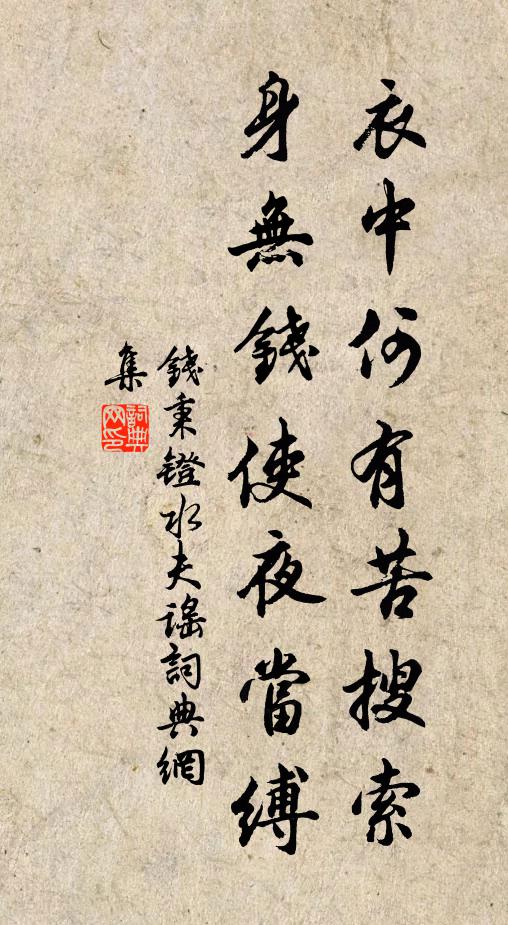 衣中何有苦搜索
身無錢使夜當縛
錢秉鐙水夫謠詞典網
集
詞典
网印